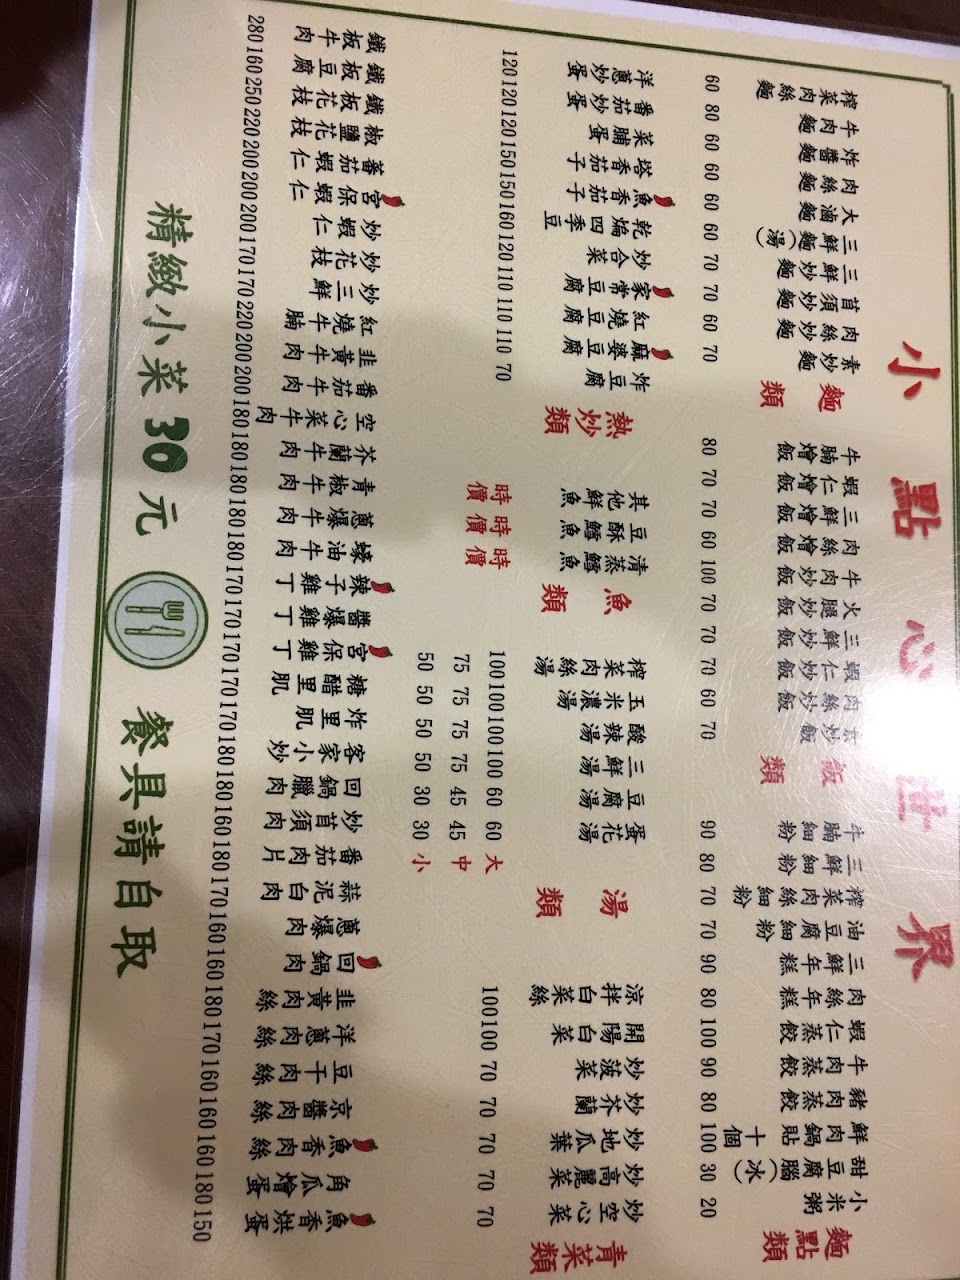 小點心世界
麵點類
小米粥 20
甜豆腐腦(冰) 30
鮮肉鍋貼十個 100
豬肉蒸餃 80
牛肉蒸餃 90
蝦仁蒸餃 100
肉絲年糕 80
三鮮年糕 90
油豆腐細粉 70
榨菜肉絲細粉 70
三鮮細粉 80
牛腩細粉 90
飯類
素炒飯 70
肉絲炒飯 60
蝦仁炒飯 70
三鮮炒飯 70
火腿炒飯 70
牛肉炒飯 100
肉絲燴飯 60
三鮮燴飯 70
蝦仁燴飯 70
牛腩燴飯 80
麵類
素炒麵 70
肉絲炒麵 60
苜須炒麵 70
三鮮炒麵 70
三鮮麵(湯) 60
大滷麵 60
肉絲麵 60
炸醬麵 60
牛肉麵 80
榨菜肉絲麵 60
青菜類
炒空心菜 70
炒高麗菜 70
炒地瓜葉 70
炒芥蘭 70
炒菠菜 70
開陽白菜 100
涼拌白菜 100
湯類
大 中 小
蛋花湯 60 45 30
豆腐湯 60 45 30
三鮮湯 100 75 50
酸辣湯 100 75 50
玉米濃湯 100 75 50
榨菜肉絲湯 100 75 50
魚類
清蒸鱈魚 時價
豆酥鱈魚 時價
其他鮮魚 時價
熱炒類
炸豆腐 70
麻婆豆腐 110
紅燒豆腐 110
家常豆腐 110
炒合菜 120
乾煸四季豆 160
魚香茄子 150
塔香茄子 150
菜脯蛋 120
番茄炒蛋 120
洋蔥炒蛋 120
魚香烘蛋 150
角瓜燴蛋 180
魚香肉絲 160
京醬肉絲 160
豆干肉絲 160
洋蔥肉絲 170
韭黃肉絲 180
回鍋肉 160
蔥爆肉 160
蒜泥白肉 170
番茄肉片 180
炒苜須肉 160
回鍋臘肉 180
客家小炒 180
炸里肌 170
糖醋里肌 170
宮保雞丁 170
醬爆雞丁 170
辣子雞丁 170
蠔油牛肉 180
蔥爆牛肉 180
青椒牛肉 180
芥蘭牛肉 180
空心菜牛肉 180
番茄牛肉 200
韭黃牛肉 200
紅燒牛腩 220
炒三鮮 170
炒花枝 170
炒蝦仁 200
宮保蝦仁 200
番茄蝦仁 200
椒鹽花枝 220
鐵板花枝 250
鐵板豆腐 160
鐵板牛肉 280
精緻小菜30元 餐具請自取